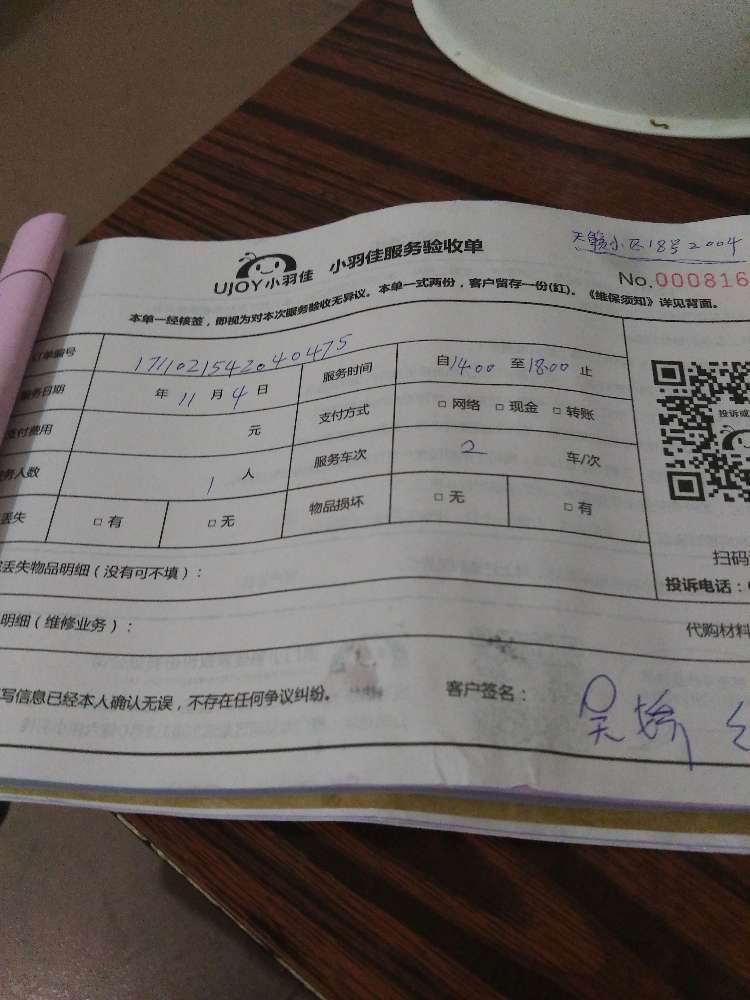 天籁小区18号2004
UJOY小羽佳 小羽佳服务验收单
No.000816
本单一经核签，即视为对本次服务验收无异议。本单一式两份，客户留存一份(红)。《维保须知》详见背面。
订单编号 1711021542040475
服务日期 年 11 月 4 日 服务时间 自14:00 至18:00 止
支付费用 元 支付方式 □ 网络 □ 现金 □ 转账
务人数 1 人 服务车次 2 车/次
丢失 □ 有 □ 无 物品损坏 □ 无 □ 有
投诉或
扫码
投诉电话：
丢失物品明细（没有可不填）：
明细（维修业务）： 代购材料
写信息已经本人确认无误，不存在任何争议纠纷。 客户签名： 吴